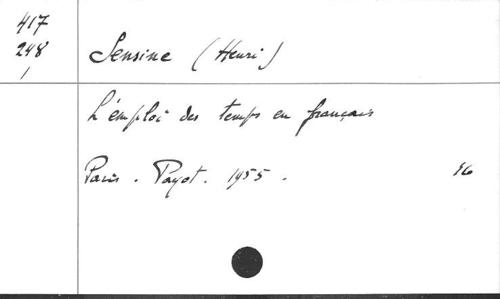 417
248
1
Sensine (Henri)
L'emploi des temps en français
Paris. Payot. 1955. 16